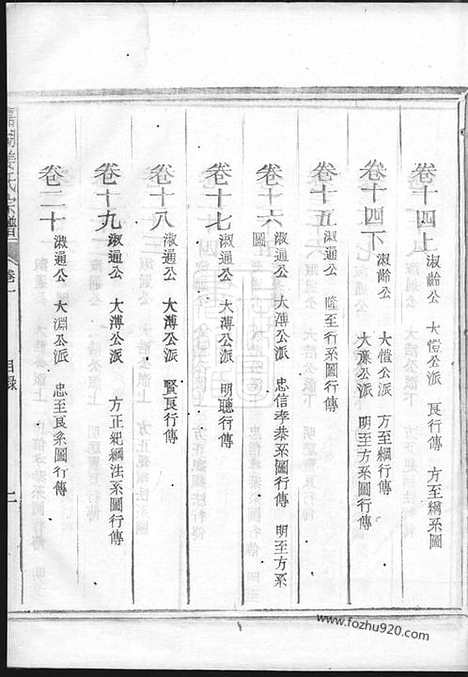 卷十四上
淑齡公 大愷公派 良行傳 方至綱系圖
卷十四下
淑齡公 大愷公派 方至綱行傳
大廉公派 明至方系圖行傳
卷十五
淑通公 隆至行系圖行傳
卷十六
淑通公 大溥公派 忠信孝恭系圖行傳 明至方系
圖
卷十七
淑通公 大溥公派 明聽行傳
卷十八
淑通公 大溥公派 賢良行傳
卷十九
淑通公 大溥公派 方正紀綱法系圖行傳
卷二十
淑通公 大淵公派 忠至良系圖行傳
氏宗譜 卷一 目錄 二
www.fozhu920.com